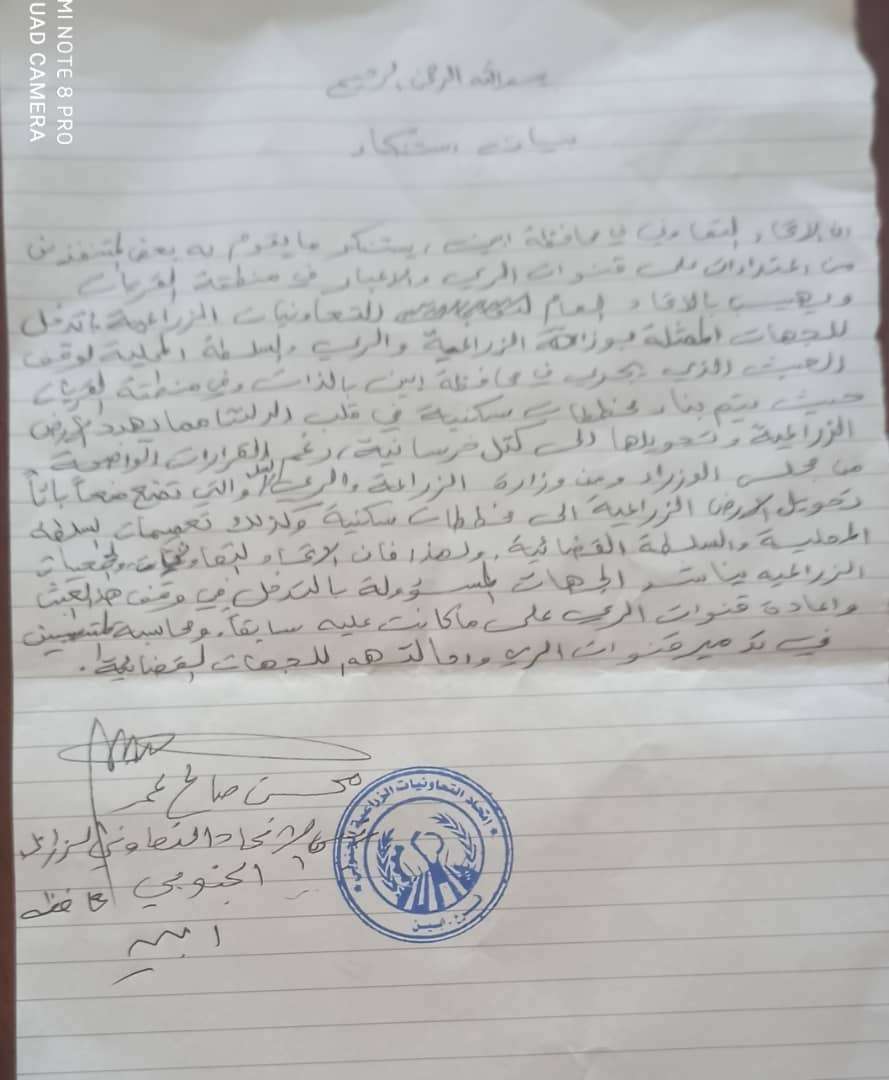 MI NOTE 8 PRO
UAD CAMERA
بسم الله الرحمن الرحيم
بيان استنكار
ان الاتحاد التعاوني في محافظة ابين يستنكر ما يقوم به بعض المتنفذين
من اعتداءات على قنوات الري والاعبار في منطقة القريات
ويهيب بالاتحاد العام للتعاونيات الزراعية باتدخل
للجهات الممثلة بوزارة الزراعية والري والسلطة المحلية لوقف
العبث الذي يجري في محافظة ابين بالذات وفي منطقة القريات
حيث يتم بناء مخططات سكنية في قلب الدلتا مما يهدد الارض
الزراعية وتحويلها الى كتل خرسانية، رغم القرارات الواضحة
من مجلس الوزراء ومن وزارة الزراعة والري والتي تمنع منعاً باتاً
تحويل الارض الزراعية الى مخططات سكنية وكذلك تعميمات السلطه
المحلية والسلطة القضائية. ولهذا فان الاتحاد التعاونيات والجمعيات
الزراعيه يناشد الجهات المسؤولة بالتدخل في وقف هذا العبث
واعادة قنوات الري على ماكانت عليه سابقاً. ومحاسبة المتسببين
في تدمير قنوات الري واحالتهم للجهات القضائية.
محسن صالح عمر
الاتحاد التعاوني الزراعي
الجنوبي محافظه
ابين
اتحاد التعاونيات الزراعية الجنوبي
ابين